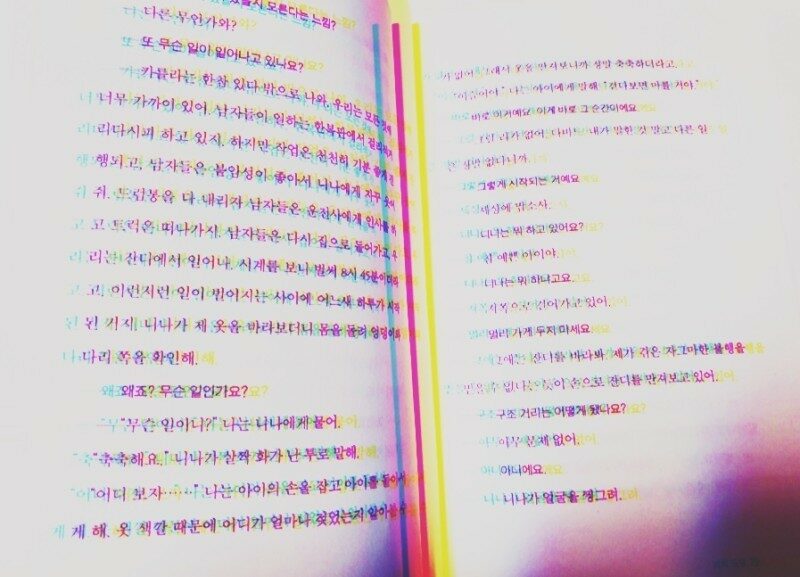 모른다는 느낌?
다른 무언가와?
또 무슨 일이 일어나고 있나요?
카를라는 한참 있다 밖으로 나와. 우리는
너무 가까이 있어. 남자들이 일하는 한복판에서
리다시피 하고 있지. 하지만 작업은 천천히 기분 좋게 진
행되고, 남자들은 붙임성이 좋아서 니나에게 자꾸
쉬. 드럼통을 다 내리자 남자들은 운전사에게 인사를 하
고 트럭은 떠나가지. 남자들은 다시 집으로 들어가고, 우
리는 잔디에서 일어나. 시계를 보니 벌써 8시 45분이더라
고. 이런저런 일이 벌어지는 사이에 어느새 하루가 시작
된 거지. 니나가 제 옷을 바라보더니 몸을 돌려 엉덩이와
다리 쪽을 확인해.
왜죠? 무슨 일인가요?
"무슨 일이니?" 나는 니나에게 물어.
"축축해요." 니나가 살짝 화가 난 투로 말해.
"어디 보자……" 나는 아이의 손을 잡고 아이를 돌아서
게 해. 옷 색깔 때문에 어디가 얼마나 젖었는지 알아볼 수
없어. 그래서 옷을 만져보니까 정말 축축하더라고.
"이슬이야." 나는 아이에게 말해. "걷다보면 마를 거야."
바로 이거예요. 이게 바로 그 순간이에요.
그럴 리가 없어, 다비드. 내가 말한 것 말고 다른 일
은 정말 없다니까.
그렇게 시작되는 거예요.
세상에 맙소사.
니나는 뭐 하고 있어요?
참 예쁜 아이야.
니나는 뭐 하냐고요.
멀리 가게 두지 마세요.
그애는 잔디를 바라봐. 제가 겪은 자그마한 불행을
믿을 수 없다는 듯이 손으로 잔디를 만져보고 있어.
구조 거리는 어떻게 됐나요?
아무 문제 없어.
아니에요.
니나가 얼굴을 찡그려.